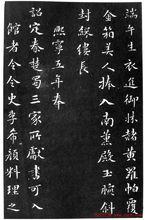 端午生衣進御牀赭黃羅帕覆
金箱美人捧入南薰殿玉腕斜
封綵縷長
熙寧五年奉
詔定秦楚蜀三家所獻書可入
館者令令史李希顏料理之